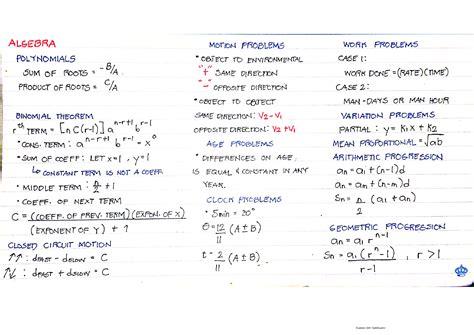 ALGEBRA
POLYNOMIALS
SUM OF ROOTS = -B/A
PRODUCT OF ROOTS = C/A
BINOMIAL THEOREM
r^th TERM = [nC(r-1)] a^(n-r+1) b^(r-1)
• CONS. TERM: a^(n-r+1) b^(r-1) = x^0
• SUM OF COEFF: LET x=1, y=1
↳ CONSTANT TERM IS NOT A COEFF
• MIDDLE TERM: n/2 + 1
• COEFF. OF NEXT TERM
C = (COEFF. OF PREV. TERM)(EXPON. OF X) / (EXPONENT OF Y) + 1
CLOSED CIRCUIT MOTION
↑↑: dFAST - dSLOW = C
↑↓: dFAST + dSLOW = C
MOTION PROBLEMS
• OBJECT TO ENVIRONMENTAL
"+" SAME DIRECTION
"-" OPPOSITE DIRECTION
• OBJECT TO OBJECT
SAME DIRECTION: V2-V1
OPPOSITE DIRECTION: V2+V1
AGE PROBLEMS
• DIFFERENCES ON AGE,
IS EQUAL & CONSTANT IN ANY
YEAR.
CLOCK PROBLEMS
• 5min = 20°
θ = 12/11 (A ± B)
t = 2/11 (A ± B)
WORK PROBLEMS
CASE 1:
WORK DONE = (RATE)(TIME)
CASE 2:
MAN-DAYS OR MAN HOUR
VARIATION PROBLEMS
PARTIAL: y = K1x + K2
MEAN PROPORTIONAL = √ab
ARITHMETIC PROGRESSION
an = a1 + (n-1)d
an = am + (n-m)d
Sn = n/2 (a1 + an)
GEOMETRIC PROGRESSION
an = a1 r^(n-1)
Sn = a1(r^n - 1) / r-1, r > 1